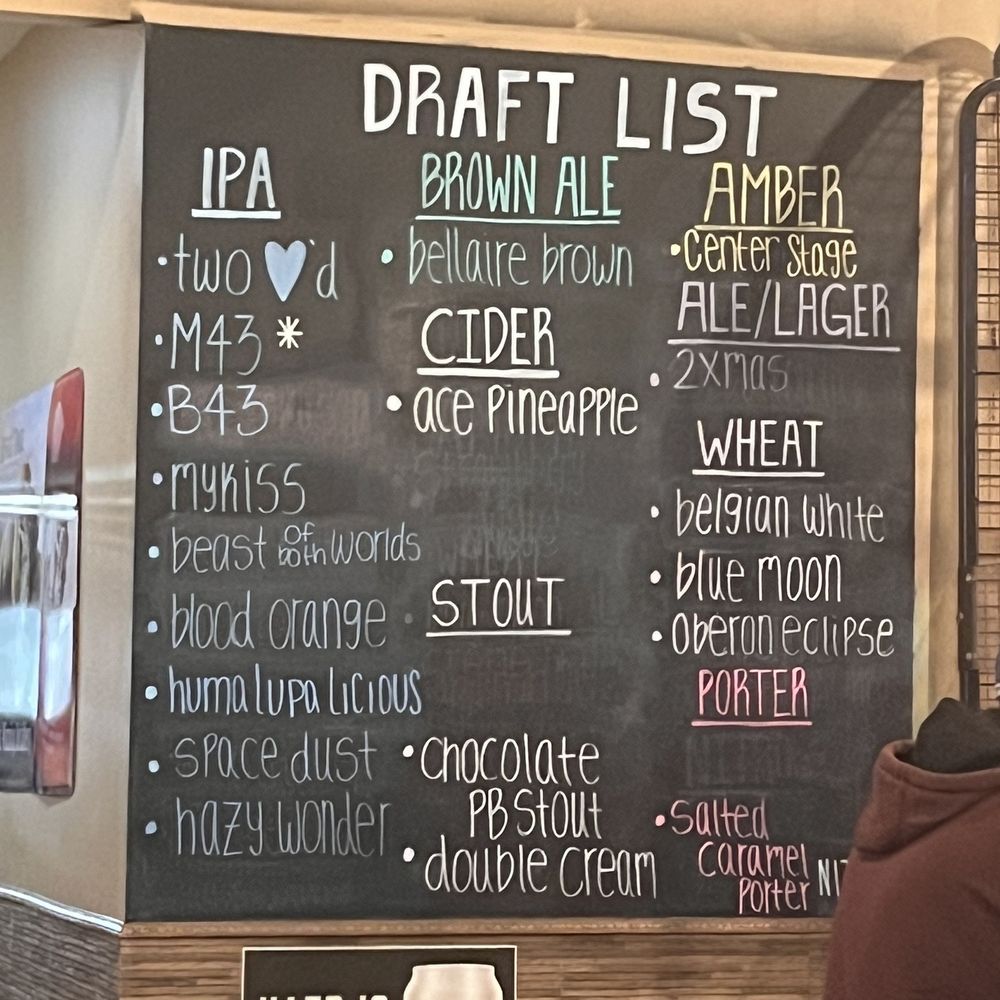 DRAFT LIST
IPA
• two ♥'d
• M43 *
• B43
• mykiss
• beast of both worlds
• blood orange
• huma lupa licious
• space dust
• hazy wonder
BROWN ALE
• bellaire brown
CIDER
• ace pineapple
STOUT
• chocolate
PB Stout
• double cream
AMBER
• Center Stage
ALE/LAGER
• 2xmas
WHEAT
• belgian white
• blue moon
• Oberon eclipse
PORTER
• Salted
Caramel
Porter